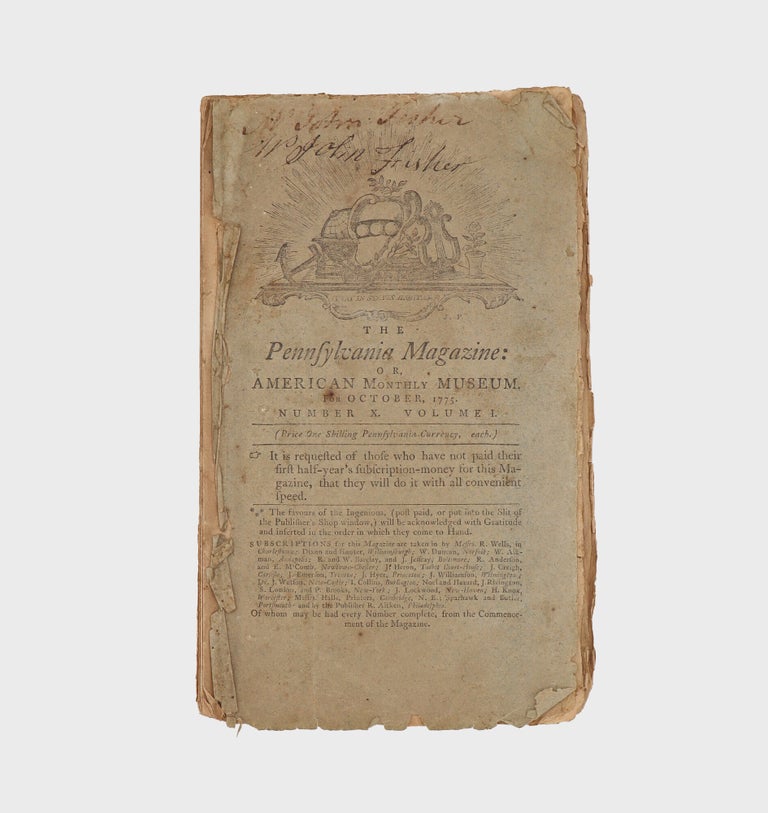 Mr John Fisher
Mr John Fisher
THE
Pennſylvania Magazine:
OR,
AMERICAN MONTHLY MUSEUM.
For OCTOBER, 1775.
NUMBER X. VOLUME I.
(Price One Shilling Pennſylvania Currency, each.)
☞ It is requeſted of thoſe who have not paid their
firſt half-year's ſubſcription-money for this Ma-
gazine, that they will do it with all convenient
ſpeed.
*** The favours of the Ingenious, (poſt paid, or put into the Slit of
the Publiſher's Shop window,) will be acknowledged with Gratitude
and inſerted in the order in which they come to Hand.
SUBSCRIPTIONS for this Magazine are taken in by Meſſrs. R. Wells, in
Charleſtown; Dixon and Hunter, Williamſburgh; W. Duncan, Norfolk; W. Aik-
man, Annapolis; R. and W. Barclay, and J. Jeffray, Baltimore; R. Anderſon,
and E. M'Comb, Newtown-Cheſter; J. Heron, Creigh,
Carliſle; J. Emerſon, Trenton; J. Hyer, Princeton; J. Williamſon, Wilmington;
Dr. J. Watſon, New-Caſtle; I. Collins, Burlington; Noel and Hazard, J. Rivington,
S. Loudon, and P. Brooks, New-York; J. Lockwood, New-Haven; H. Knox,
Worceſter; Meſſrs. Halls, Printers, Cambridge, N. E.; Sparhawk and
Portſmouth and by the Publiſher R. Aitken, Philadelphia.
Of whom may be had every Number complete, from the Commence-
ment of the Magazine.